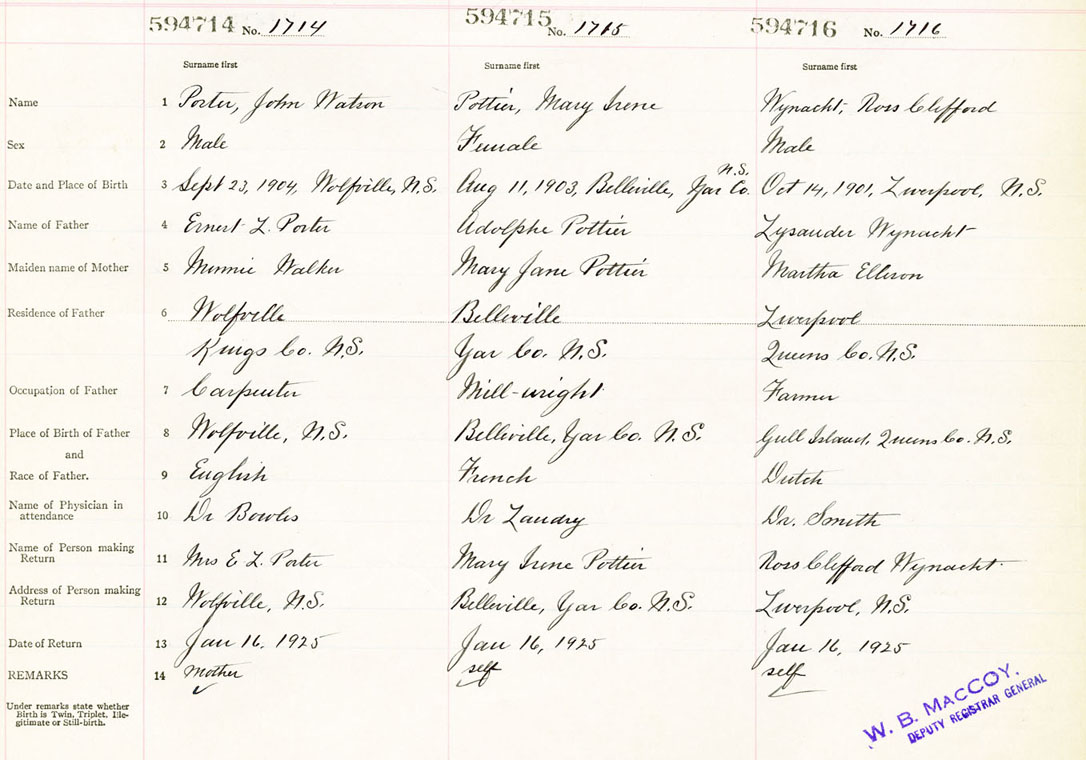 594714 No. 1714 594715 No. 1715 594716 No. 1716
Surname first Surname first Surname first
Name 1 Porter, John Watson Pottier, Mary Irene Wynacht, Ross Clifford
Sex 2 Male Female Male
N.S.
Date and Place of Birth 3 Sept 23, 1904, Wolfville, N.S. Aug 11, 1903, Belleville, Yar Co. Oct 14, 1901, Liverpool, N.S.
Name of Father 4 Ernest L. Porter Adolphe Pottier Lysander Wynacht
Maiden name of Mother 5 Minnie Walker Mary Jane Pottier Martha Ellison
Residence of Father 6 Wolfville Belleville Liverpool
Kings Co. N.S. Yar Co. N.S. Queens Co. N.S.
Occupation of Father 7 Carpenter Mill-wright Farmer
Place of Birth of Father 8 Wolfville, N.S. Belleville, Yar Co. N.S. Gull Island, Queens Co. N.S.
and
Race of Father. 9 English French Dutch
Name of Physician in
attendance 10 Dr Bowles Dr Landry Dr. Smith
Name of Person making
Return 11 Mrs E L. Porter Mary Irene Pottier Ross Clifford Wynacht
Address of Person making
Return 12 Wolfville, N.S. Belleville, Yar Co. N.S. Liverpool, N.S.
Date of Return 13 Jan 16, 1925 Jan 16, 1925 Jan 16, 1925
REMARKS 14 Mother self self
Under remarks state whether
Birth is Twin, Triplet, Ille-
gitimate or Still-birth.
W. B. MacCOY,
DEPUTY REGISTRAR GENERAL